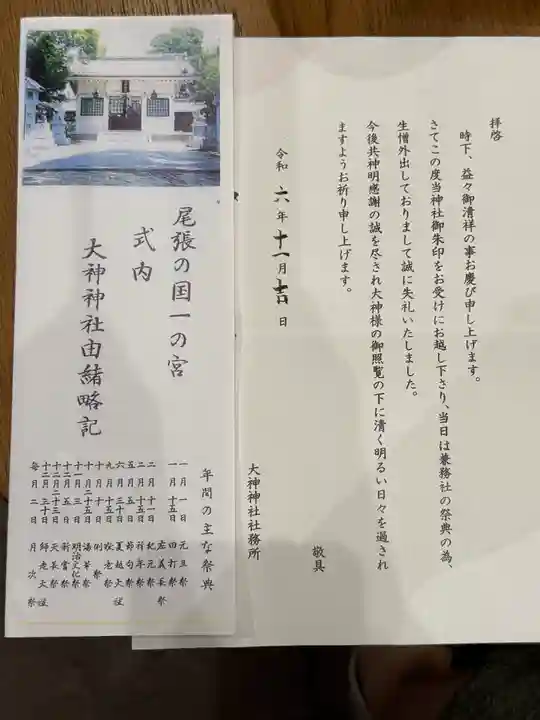 拝啓
時下、益々御清祥の事お慶び申し上げます。
さてこの度当神社御朱印をお受けにお越し下さり、当日は兼務社の祭典の為、
生憎外出しておりまして誠に失礼いたしました。
今後共神明感謝の誠を尽され大神様の御照覧の下に清く明るい日々を過され
ますようお祈り申し上げます。
敬具
令和 六 年 十一 月 日
大神神社社務所
尾張の国一の宮
式内
大神神社由緒略記
年間の主な祭典
一月一日 元旦祭
一月十五日 四打祭
左義長祭
二月十一日 紀元祭
二月十五日 祈年祭
五月五日 節句祭
六月三十日 夏越大祓
九月 疫老祭
十月十日 例祭
十一月三日 明治文化祭
十二月五日 新嘗祭
十二月二十三日 天長祭
十二月三十日 師走大祓
毎月二日 月次祭